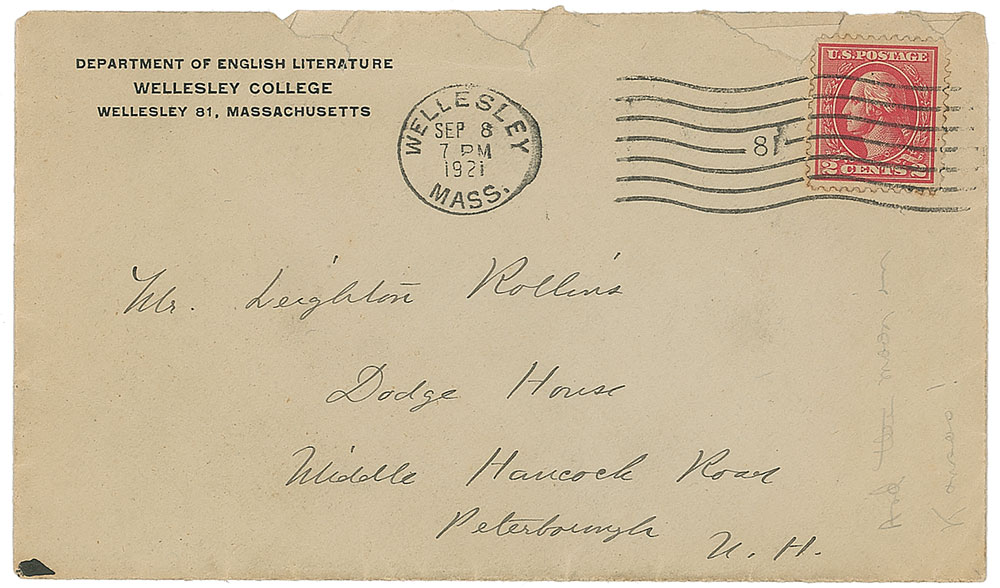 DEPARTMENT OF ENGLISH LITERATURE
WELLESLEY COLLEGE
WELLESLEY 81, MASSACHUSETTS
WELLESLEY
SEP 8
7 PM
1921
MASS.
8
U.S. POSTAGE
2 CENTS 2
Mr. Leighton Rollins
Dodge House
Middle Hancock Road
Peterborough
N. H.
moon